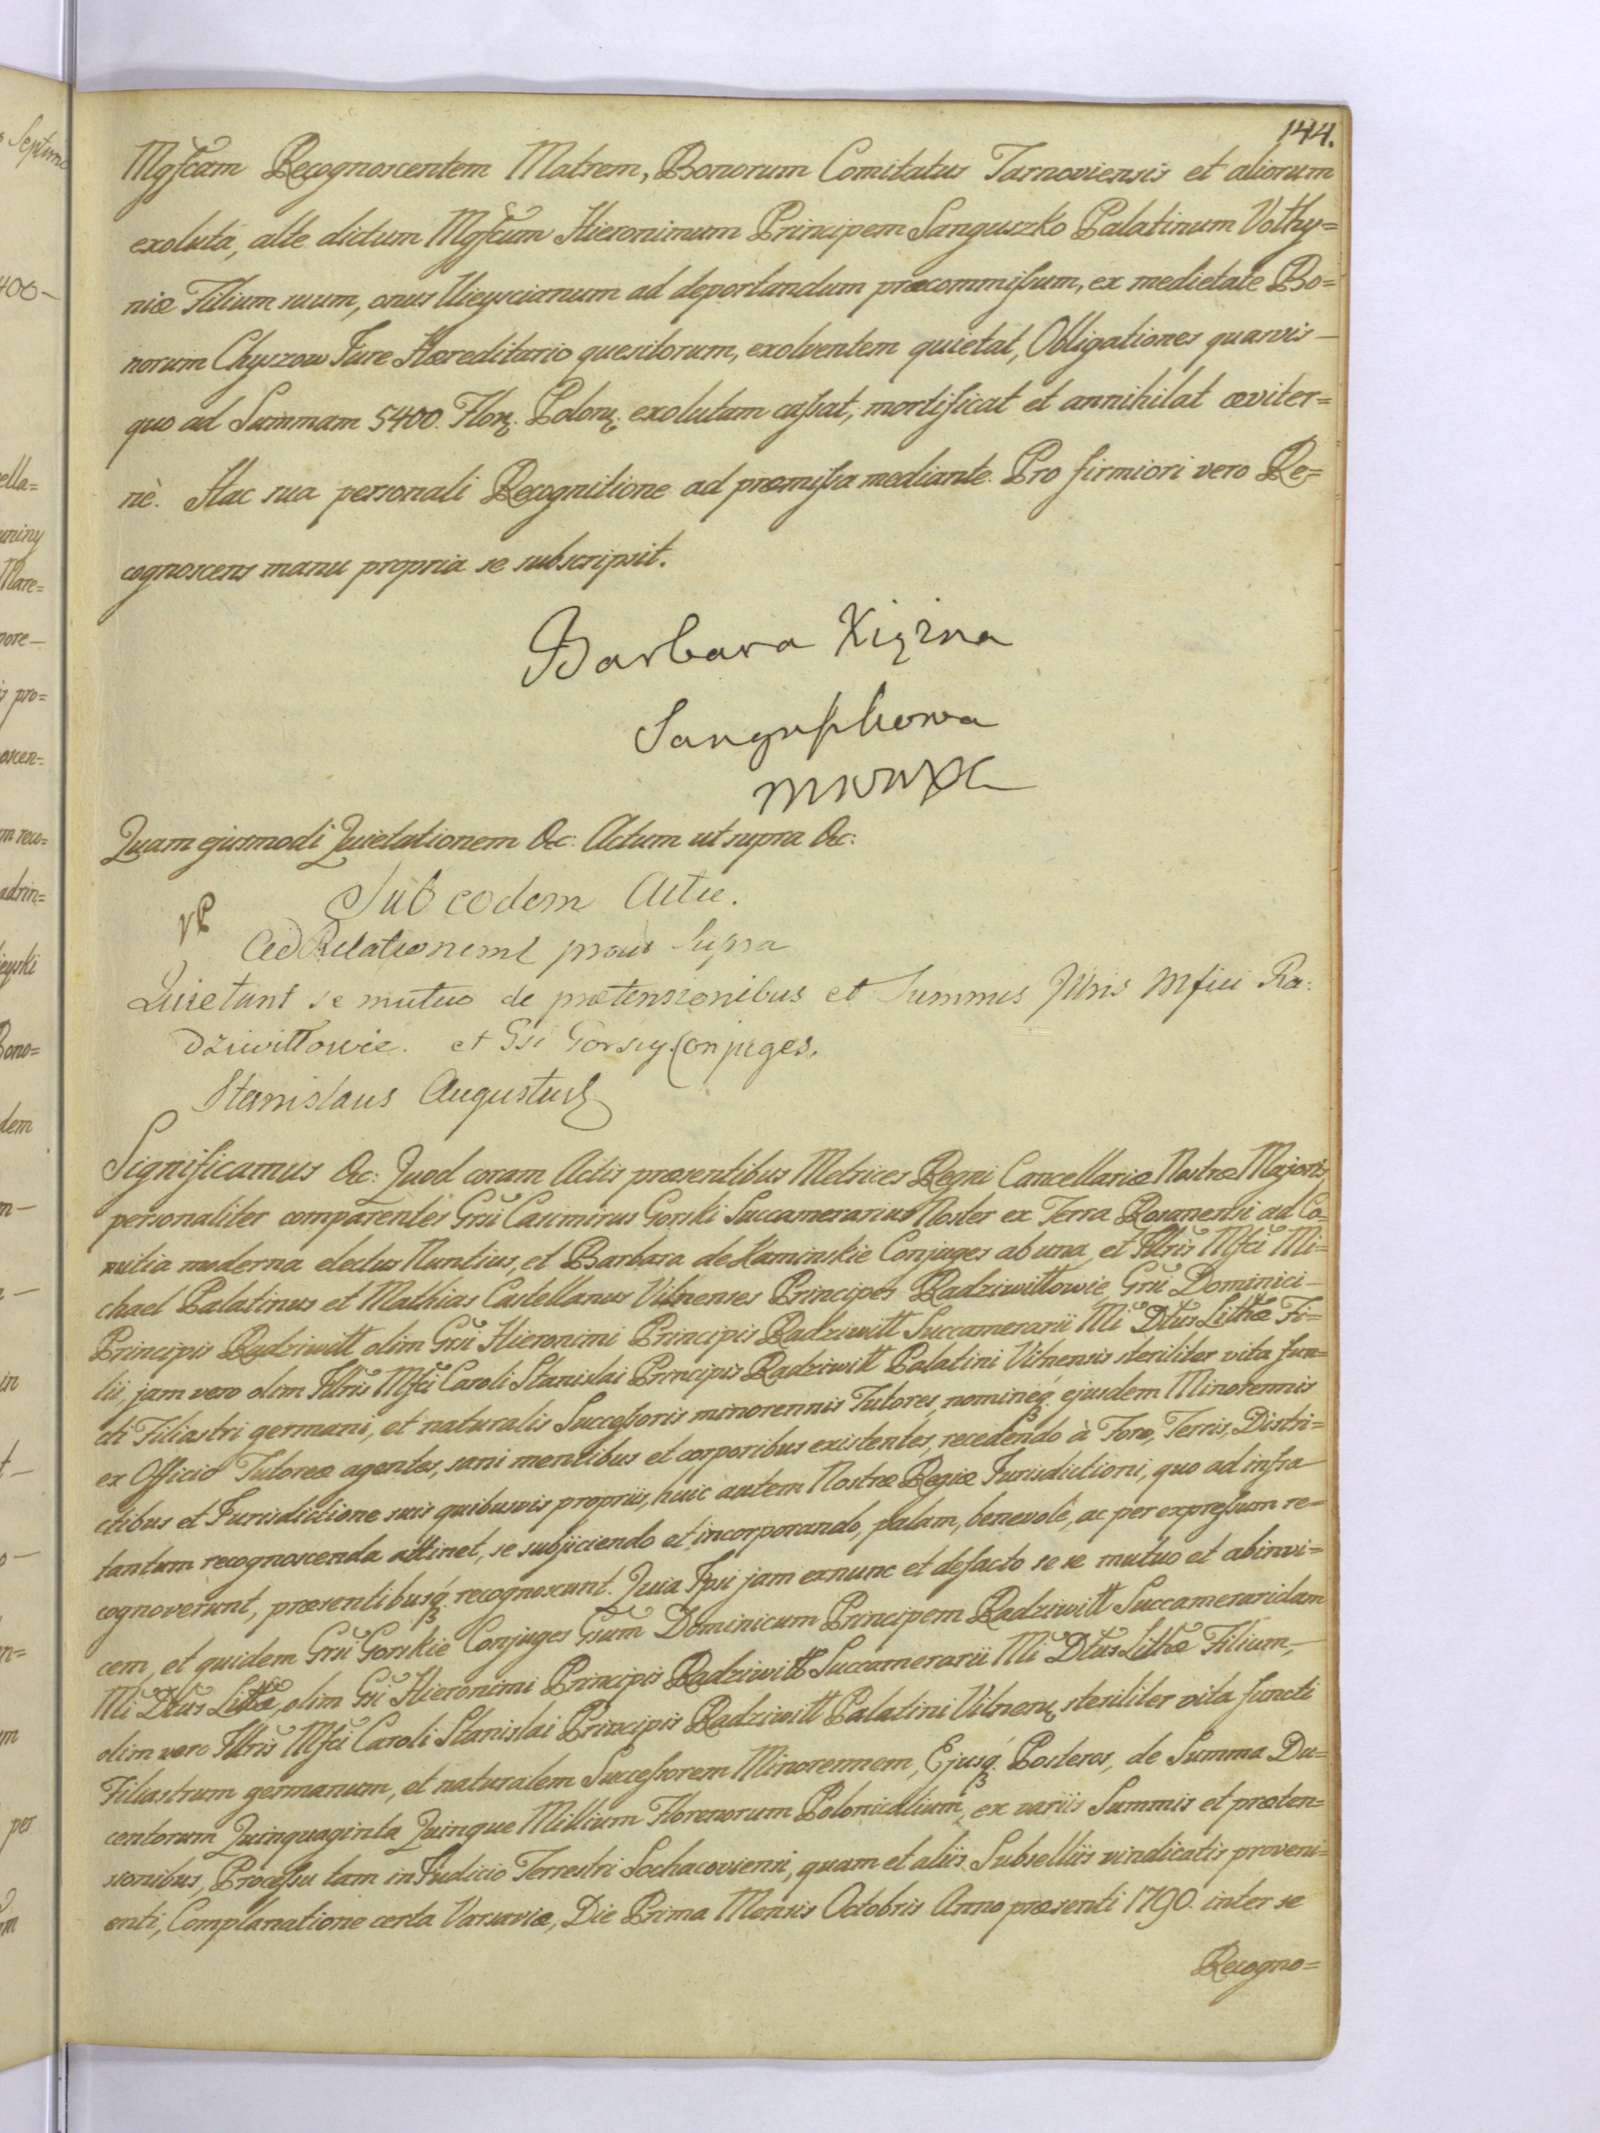 144.
Mgfcam Recognoscentem Matrem, Bonorum Comitatus Tarnoviensis et aliorum
exoluta, alte dictum Mgfcum Hieronimum Principem Sanguszko Palatinum Volhy=
niæ Filium suum, onus Uieyscianum ad deportandum præcommissum, ex medietate Bo=
norum Chyszow Jure Hæreditario quesitorum, exolventem quietat, Obligationes quasvis
quo ad Summam 5400. Flor. Polon. exolutam cassat, mortificat et annihilat æviter=
nè. Hac sua personali Recognitione ad præmissa mediante. Pro firmiori vero Re=
cognoscens manu propria se subscripsit.
Barbara Xiężna
Sanguszkowa
Quam ejusmodi Quietationem &c: Actum ut supra &c:
Sub eodem Actu.
Ad Relationem prout Supra
Quietant se mutuo de prætensionibus et Summis Jllris Mfici Ra:
dziwiłłowie. et Gsi Gorscy Conjuges.
Stanislaus Augustus
Significamus &c: Quod coram Actis præsentibus Metrices Regni Cancellariæ Nostræ Majoris
personaliter comparentes Grsi Casimirus Gorski Succamerarius Noster ex Terra Rosanensi ad Co=
mitia moderna electus Nuntius, et Barbara de Kaminskie Conjuges ab una, et Jllris Mfci Mi=
chael Palatinus et Mathias Castellanus Vilnenses Principes Radziwiłłowie Grsi Dominici
Principis Radziwiłł olim Grsi Hieronimi Principis Radziwiłł Succamerarii Mi Dtus Litthæ Fi=
lii, jam vero olim Jllris Mfci Caroli Stanislai Principis Radziwiłł Palatini Vilnensis steriliter vita fun=
cti Filiastri germani, et naturalis Successoris minorennis Tutores, nomineq́ ejusdem Minorennis
ex Officio Tutoreo agentes, sani mentibus et corporibus existentes, recedendo à Foro, Terris, Distri=
ctibus et Jurisdictione suis quibusvis propriis, huic autem Nostræ Regiæ Jurisdictioni, quo ad infra
tantum recognoscenda attinet, se subjiciendo et incorporando, palam, benevolè, ac per expressum re=
cognoverunt, præsentibusq́ recognoscunt. Quia Ipsi jam exnunc et defacto se se mutuo et abinvi=
cem, et quidem Grsi Gorskie Conjuges Grsum Dominicum Principem Radziwiłł Succameraridam
Mi Dtus Litthæ, olim Gsi Hieronimi Principis Radziwiłł Succamerarii Mi Dtus Litthæ Filium,
olim vero Jllris Mfci Caroli Stanislai Principis Radziwiłł Palatini Vilnen. steriliter vita functi
Filiastrum germanum, et naturalem Successorem Minorennem, Ejusq́ Posteros, de Summa Du=
centorum Quinquaginta Quinque Millium Florenorum Polonicalium, ex variis Summis et præten=
sionibus, Processu tam in Judicio Terrestri Sochacoviensi, quam et aliis Subselliis vindicatis proveni=
enti, Complanatione certa Varsaviæ, Die Prima Mensis Octobris Anno præsenti 1790. inter se
Recogno=